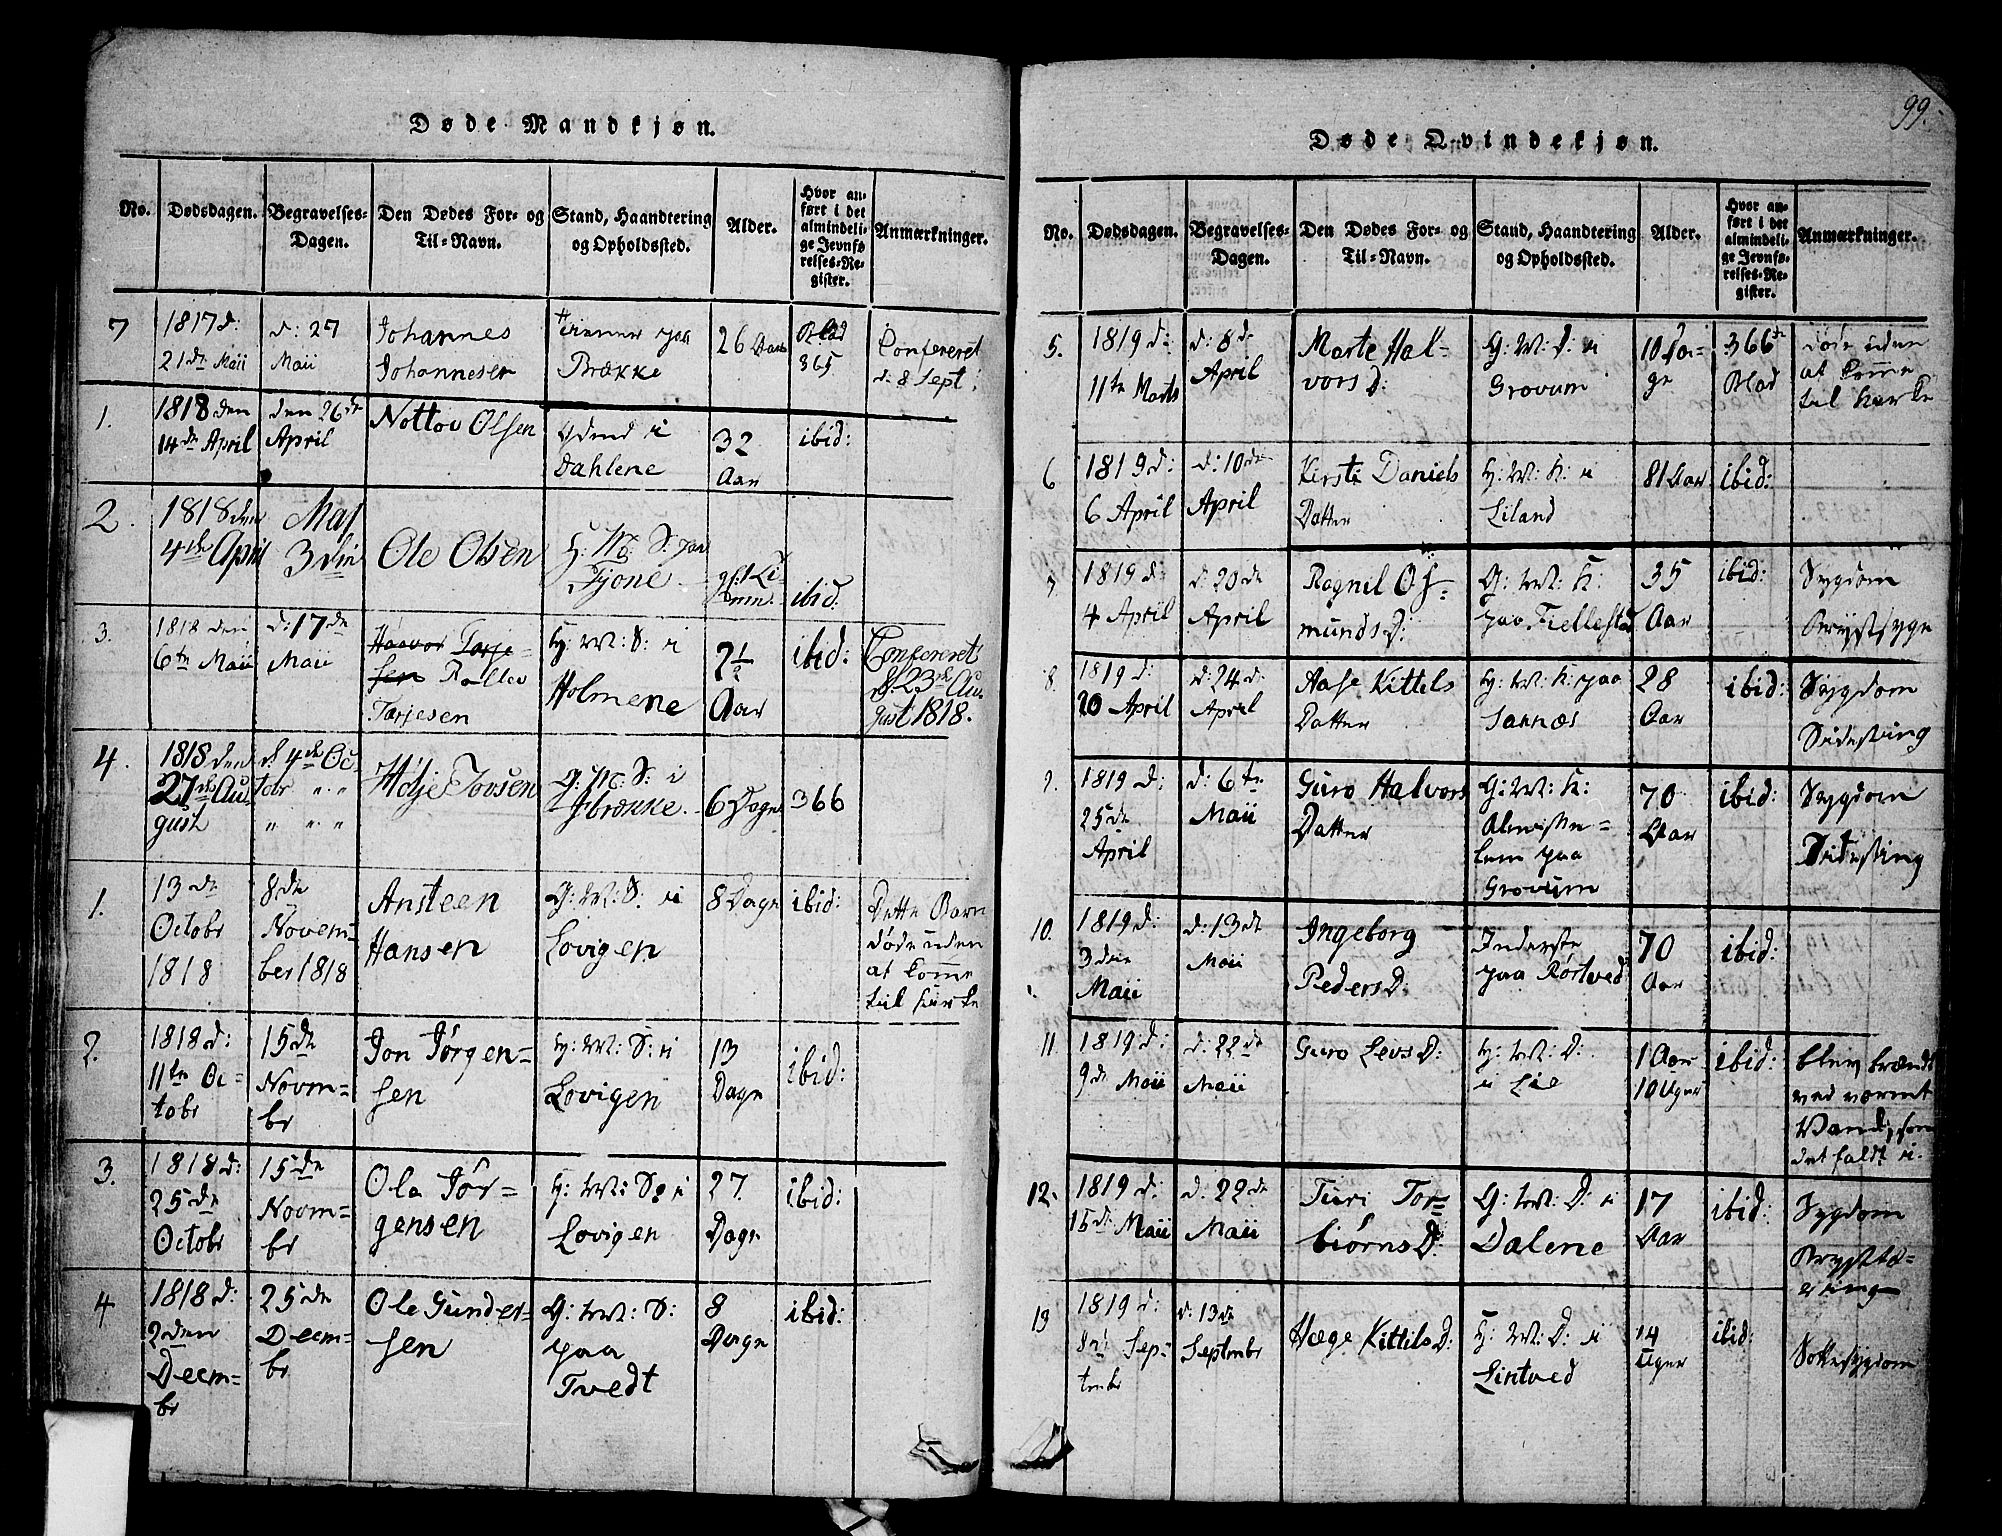 99.
Døde Mandkjøn.
No. Dødsdagen. Begravelses-Dagen. Den Dødes For- og Til-Navn. Stand, Haandtering og Opholdssted. Alder. Hvor anført i det almindelige Jevnførelses-Register. Anmærkninger.
7 1817 d: 21de Maii d: 27 Maii Johannes Johannesen paa Brække 26 Aar Blad 365 Confereret d: 8 Sept:
1. 1818 den 14de April den 26de April Nottov Olsen i Dahlene 32 Aar ibid:
2. 1818 den 4de April Maj 3die Ole Olsen G: M: S: paa Tjone ibid:
3. 1818 den 6te Maii d: 17de Maii Haavor Tarjesen Rollev Tarjesen G: M: S: i Holmene 2½ Aar ibid: Confereret d. 23de August 1818.
4. 1818 den 27de August d. 4de Octobr " " " " " Højje Tovsen G: M: S: i Brække. 6 Dage 366
1. 13de Octobr 1818 8de November 1818 Ansteen Hansen G: M: S: i Lovigen 8 Dage ibid: Dette Barn døde uden at komme til Kirke
2. 1818 d: 11te Octobr 15de Novmbr Jon Jørgensen H: M: S: i Lovigen 13 Dage ibid:
3. 1818 d: 25de Octobr 15de Novmbr Ole Jørgensen H: M: S: i Lovigen 27 Dage ibid:
4 1818 d: 2den Decmbr 25de Decmbr Ole Gundersen G: M: S: paa Tvedt 8 Dage ibid:
Døde Qvindekjøn.
No. Dødsdagen. Begravelses-Dagen. Den Dødes For- og Til-Navn. Stand, Haandtering og Opholdssted. Alder. Hvor anført i det almindelige Jevnførelses-Register. Anmærkninger.
5. 1819 d: 11te Marts d: 8de April Marte Halvors D: G: M: D: i Grovum 10 Dage 366te Blad døde uden at komme til Kirke
6 1819 d: 6 April d: 10de April Kersti Daniels Datter H: M: K: i Liland 81 Aar ibid:
7 1819 d: 4 April d: 20de April Ragnil Osmunds D: G: M: K: paa Fiellestad 35 Aar ibid: Sygdom Brystsyge
8. 1819 d: 20 April d: 24de April Aase Kittels Datter H: M: K: paa Sannæs 28 Aar ibid: Sygdom Sidesting
9. 1819 d: 25de April d: 6te Maii Guro Halvors Datter G: M: K: Almisselem paa Grovum 70 Aar ibid: Sygdom Sidesting
10. 1819 d: 3die Maii d: 13de Maii Ingeborg Peders D: Inderste paa Rørtved 70 Aar ibid:
11 1819 d: 9de Maii d: 22de Maii Guro Levs D: H: M: D: i Lie 1 Aar 10 Uger ibid: blev brændt ved varmt Vand, som det faldt i.
12. 1819 d: 15de Maii d: 22de Maii Turi Torbiørns D: G: M: D: i Dalene 17 Aar ibid: Sygdom Brysttæring
13 1819 d: 8de Septmbr d: 13de Septmbr Hæge Kittils D: H: M: D: i Lintved 14 Uger ibid: Sottesygdom